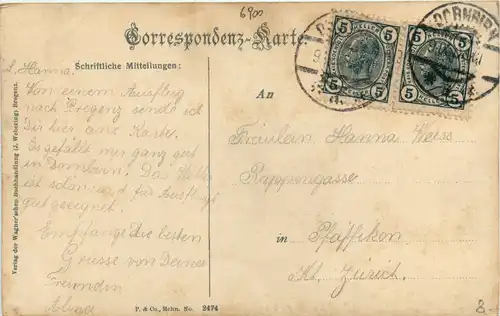 6900
Correspondenz-Karte.
Schriftliche Mitteilungen:
L. Hanna.
Von einem Ausflug
nach Bregenz sende ich
Dir hier eine Karte.
Es gefällt mir ganz gut
in Dornbirn. Das
ist schön und für Ausflüge
gut geeignet.
Empfange die besten
Grüsse von Deiner
Freundin
An
Fräulein Hanna Weiss
Rappengasse
in Pfäffikon
Kt. Zürich.
5 5
5 5
5 5
5 5
DORNBIRN
Verlag der Wagner'schen Buchhandlung (J. Webering) Bregenz.
P. & Co., Mchn. No. 2474
8.-